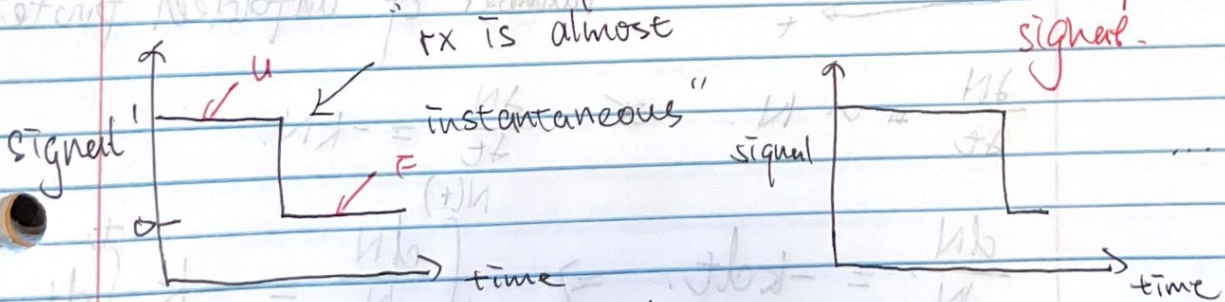 "rx is almost
instantaneous"
U
F
signal
1
0
time
signal.
signal
time
....